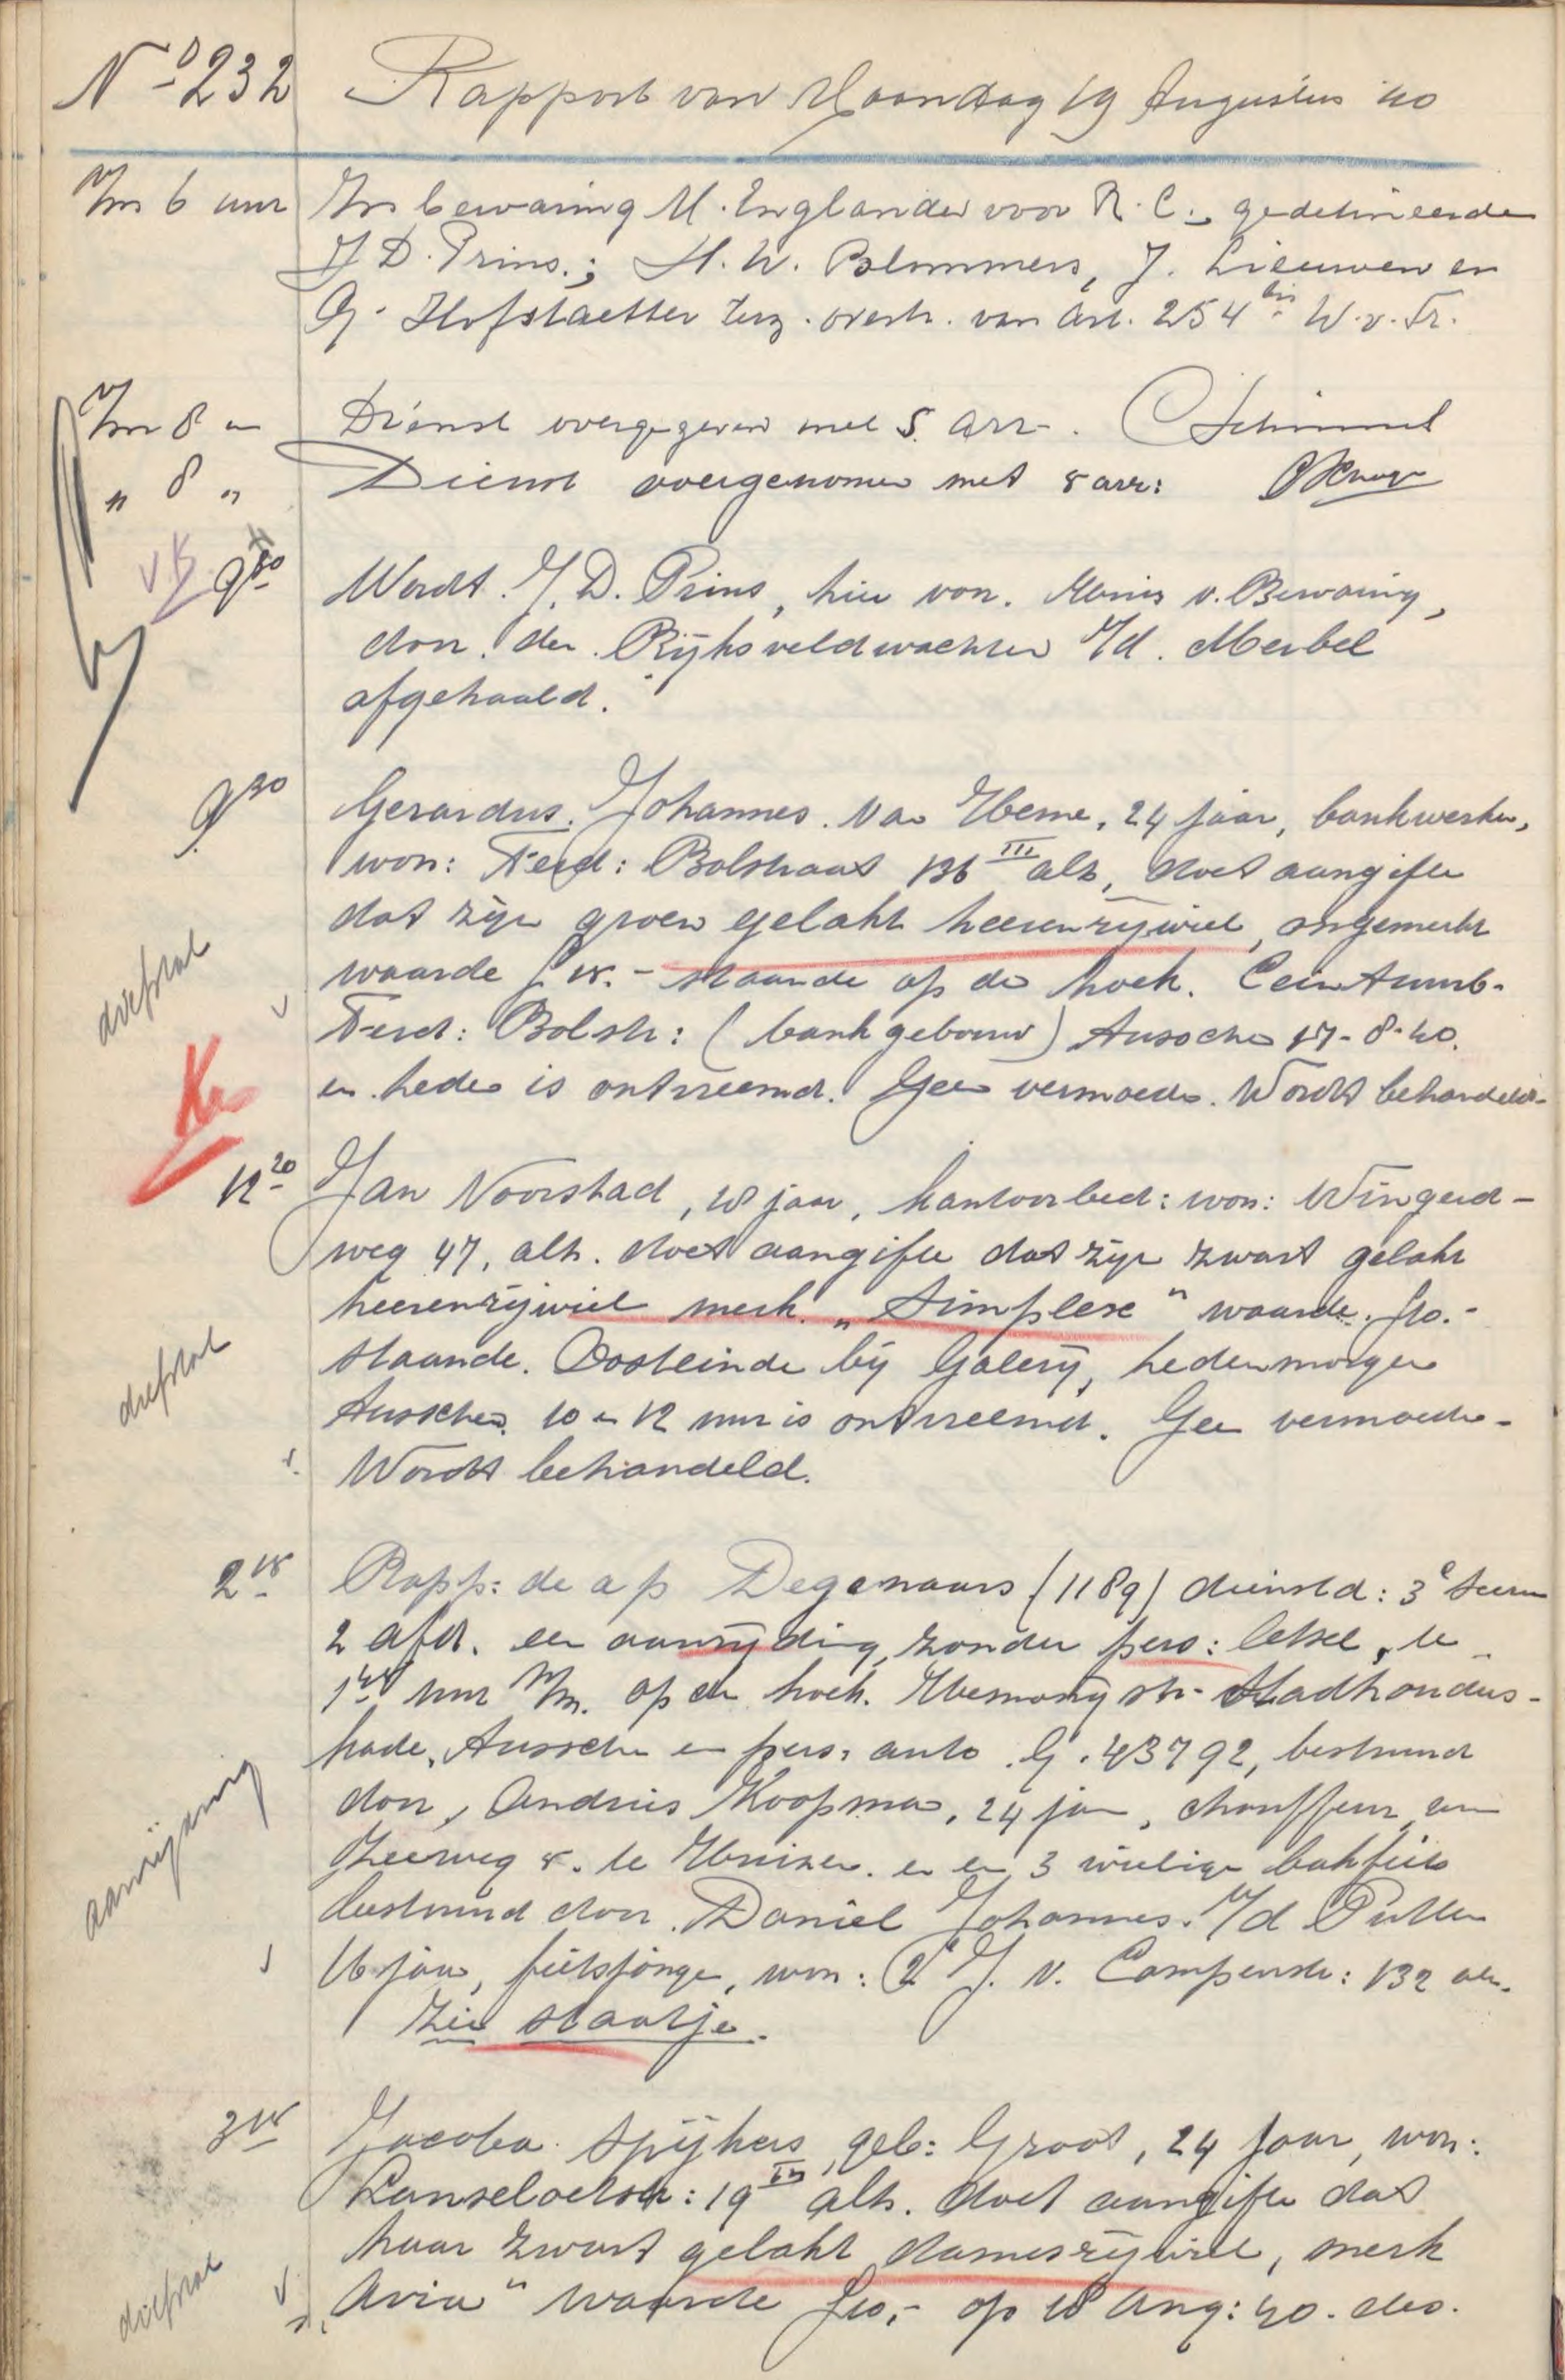 No 232 Rapport van Maandag 19 Augustus '40
Vm 6 uur In bewaring M. Englander voor R.C.; gedetineerden
J D. Prins.; H. W. Blommers, J. Lieuwen en
G. Hofstaetter terz. overtr. van Art. 254 bis W.v.Sr.
Vm 8 " Dienst overgegeven met 5 arr. C Schimmel
" 8 " Dienst overgenomen met 5 arr:
VK 9 Wordt J. D. Prins, hier van. Huis v. Bewaring,
door. den. Rijksveldwachter v/d. Meubel
afgehaald.
9 30 Gerardus. Johannes. van Heme, 24 jaar, bankwerker,
won: Ferd: Bolstraat 136 III alh, doet aangifte
dat zijn groen gelakt heerenrijwiel, ongemerkt
diefstal waarde f 15.- staande op de hoek. Ceintuurb.
Ferd: Bolstr: (bankgebouw) tusschen 17-8-40.
en heden is ontvreemd. Geen vermoeden. Wordt behandeld-
12 20 Jan Noorstad, 18 jaar, kantoorbed: won: Wingerd-
weg 47, alh. doet aangifte dat zijn zwart gelakt
heerenrijwiel merk. "Simplex" waarde. f10.-
diefstal staande. Oosteinde bij Galerij, hedenmorgen
tusschen 10 en 12 uur is ontvreemd. Geen vermoeden-
Wordt behandeld.
2 15 Rapp: de a p Degenaars (1189) dienstd: 3e
2 afd. een aanrijding, zonder pers: letsel, te
uur n/m. op den hoek. Hemonystr- Stadhouders-
kade, tusschen een pers: auto G. 43792, bestuurd
aanrijding door, Andries Koopman, 24 jaar, chauffeur, won
Zeeweg 8. te Huizen. en een 3 wielige bakfiets
bestuurd door. Daniel Johannes. v/d Putten
16 jaar, fietsjongen, won: 2e J. v. Campenstr: 132 alh.
Zie staatje.
3 15 Jacoba Spijkers, geb: Groot, 24 jaar, won:
Lanseloetstr: 19 alh. doet aangifte dat
haar zwart gelakt damesrijwiel, merk
diefstal "Avia" waarde f10,- op 18 Aug: 40. des.